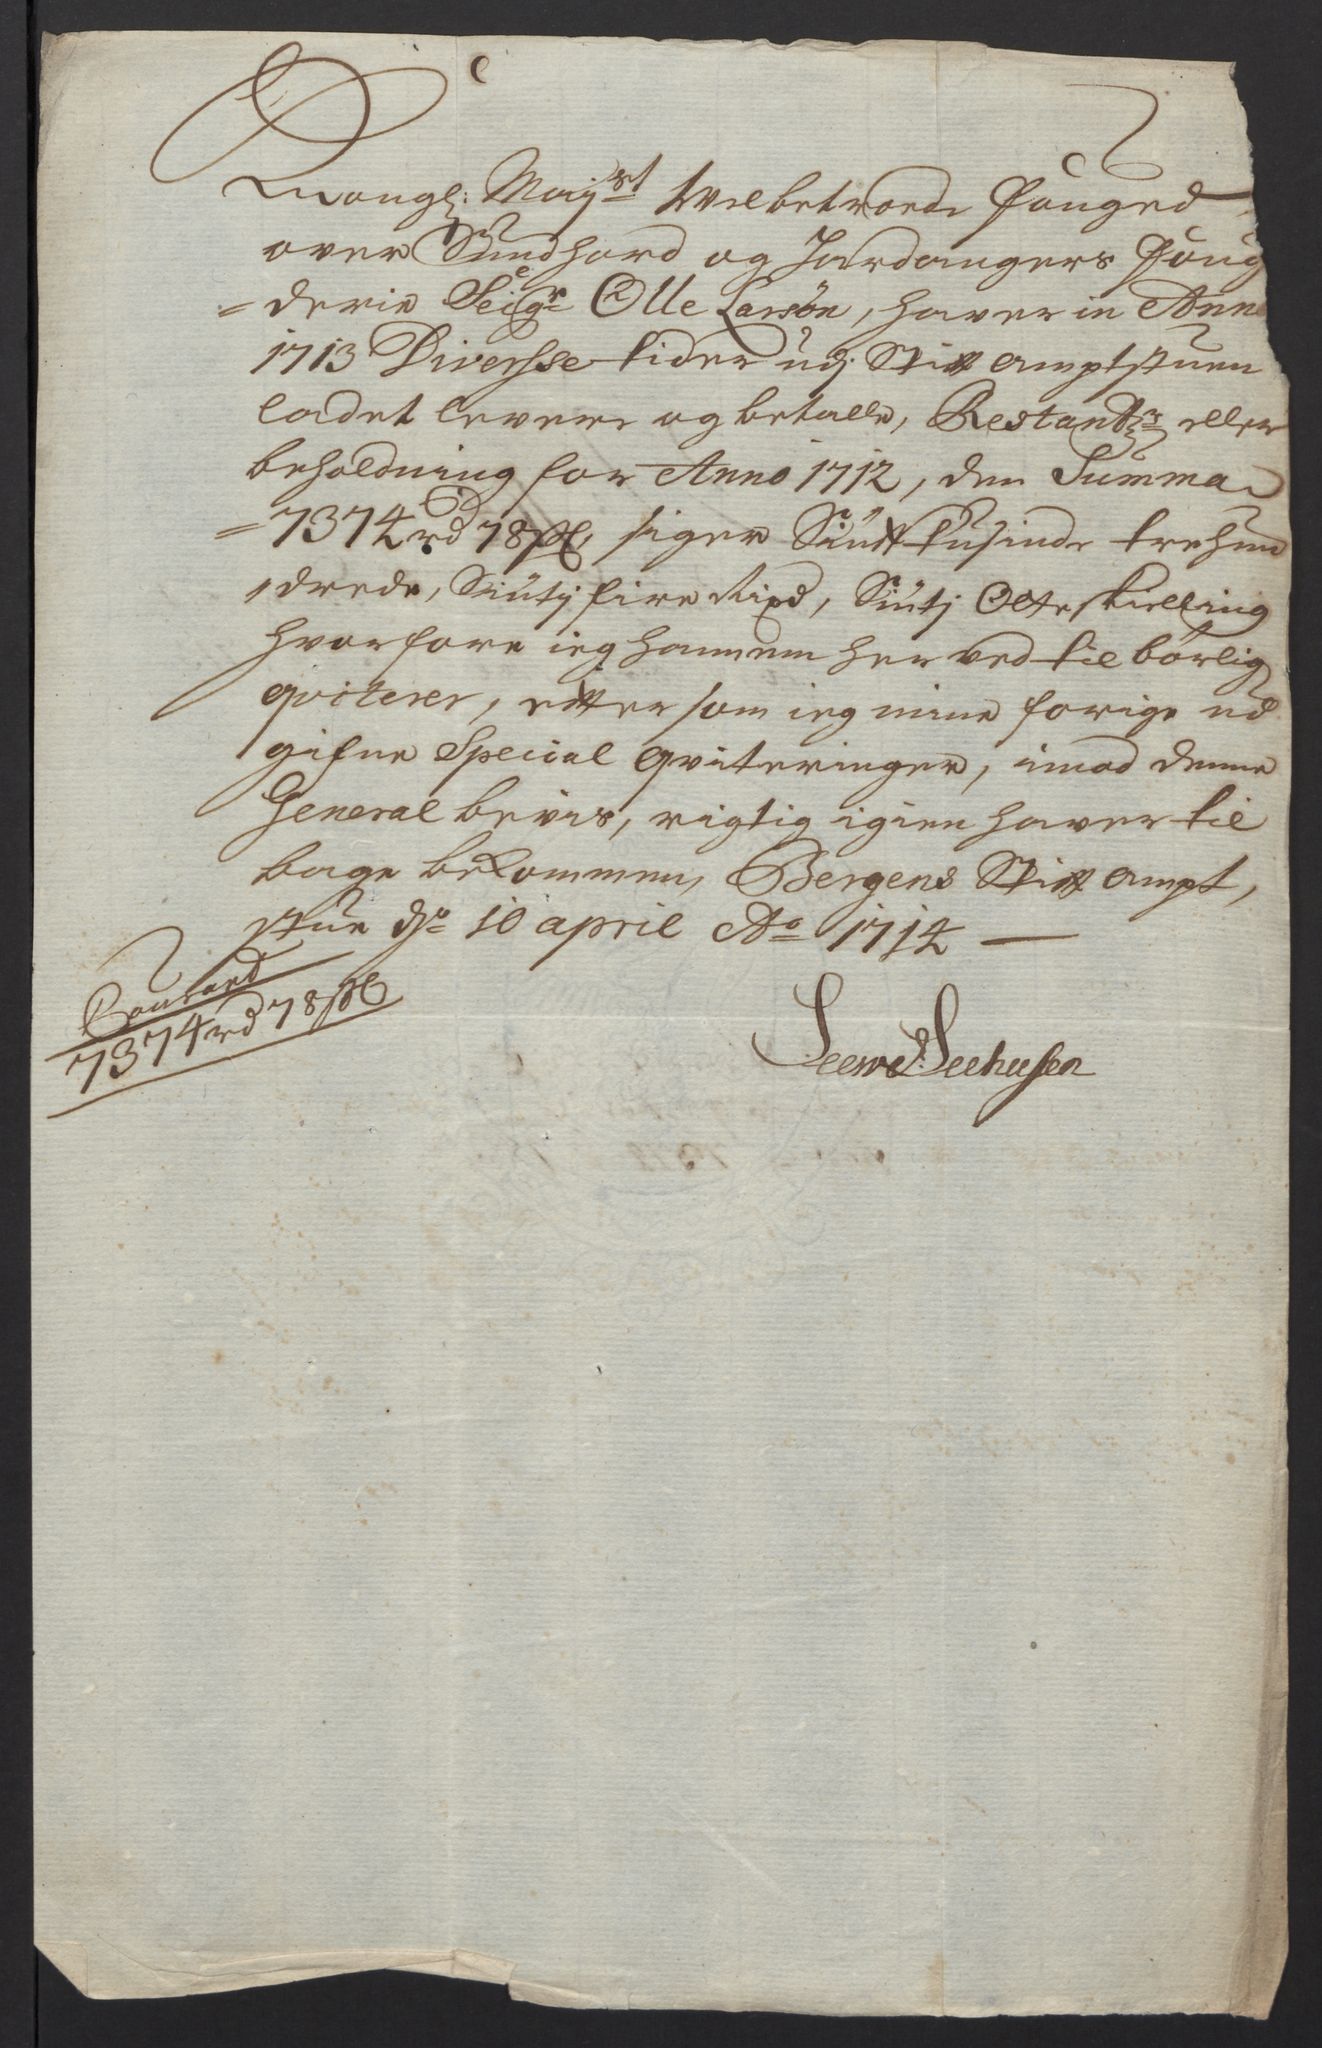 Kongl: Mayst Welbetroede Fouged
over Sundhord og Hardangers Foug
= derie Seigr Olle Larsön, haver in Anno
1713 Diversse tider udj Stift amptstuen
ladet levere og betalle, Restantz eller
beholdning for Anno 1712, den Summa
= 7374 rd 78 ß, siger Siuftusinde trehun
drede, Siutj fire Rixd, Siutj Otte skielling
hvorfore ieg hannem her ved tilbörlig
qviterer, efftersom ieg mine forige ud
gifne Special qviteringer, imod denne
General bevis, rigtig igien haver til
bage bekommen, Bergens Stift ampt,
stue dn 10 april Ao 1714
7374 rd 78 ß
Seehusen